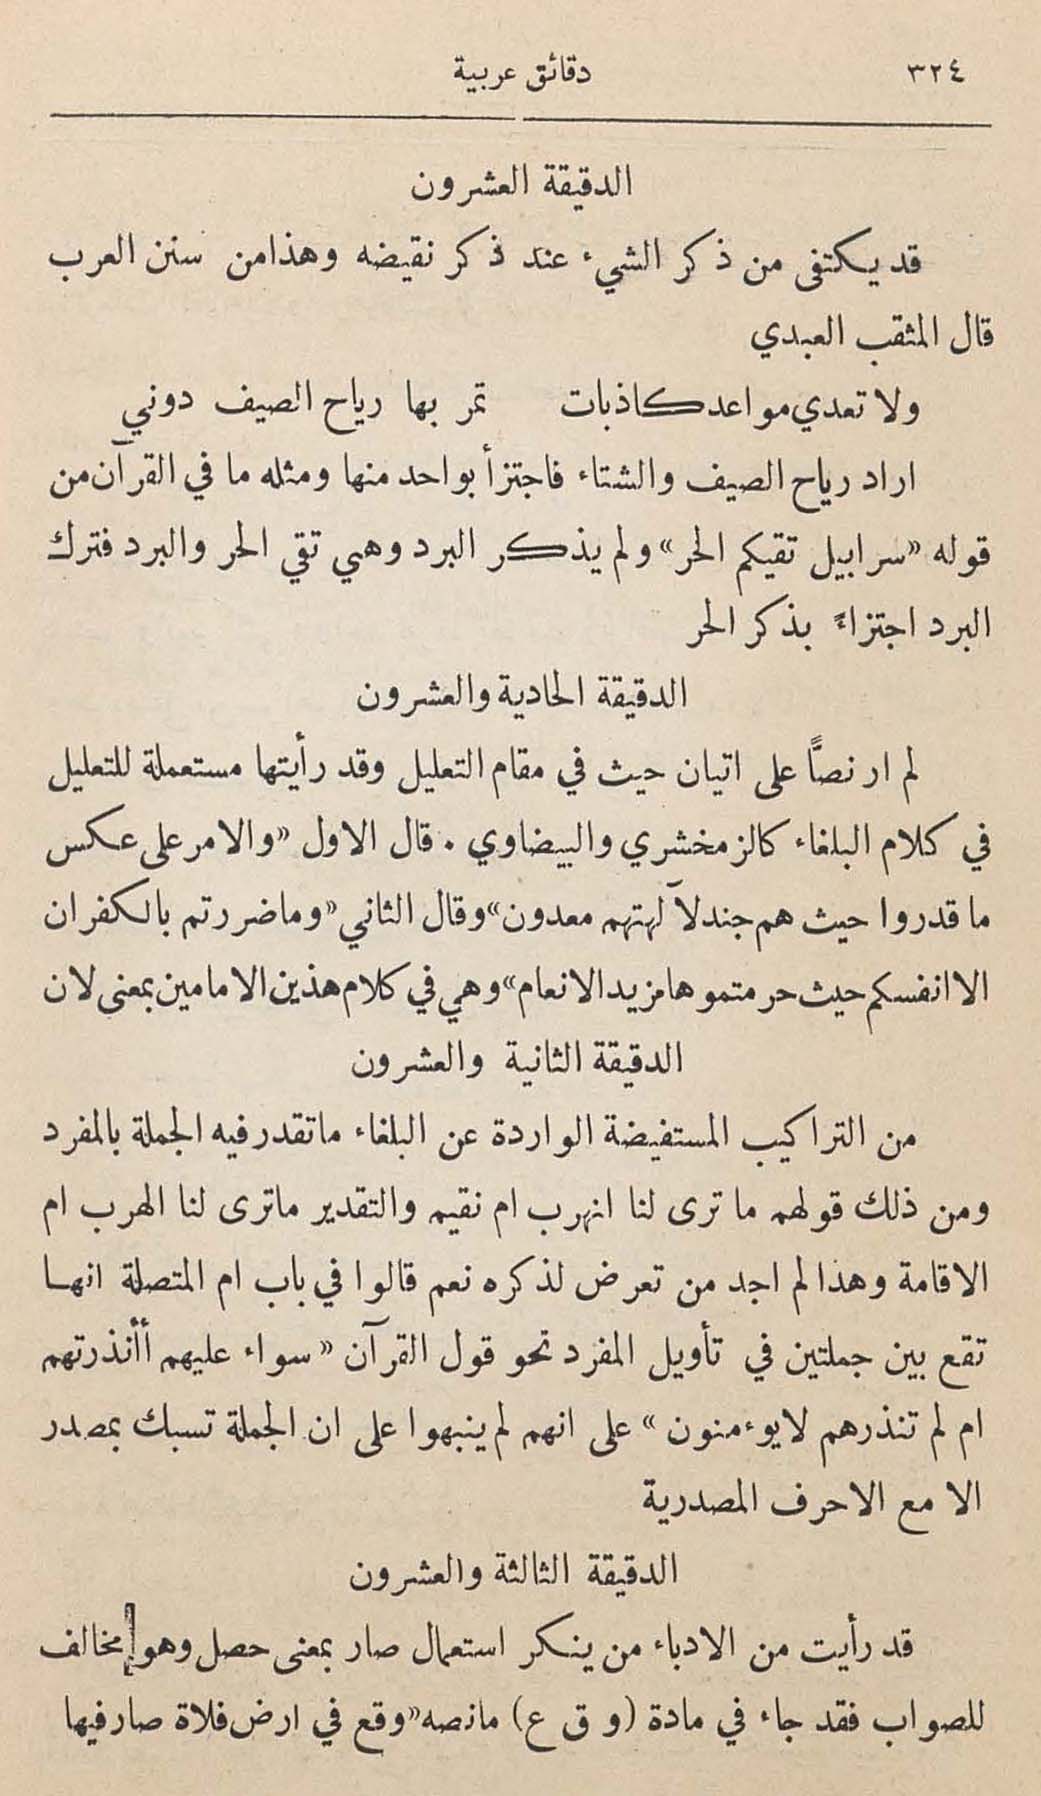 ٣٢٤ دقائق عربية
الدقيقة العشرون
قد يكتفى من ذكر الشيء عند ذكر نقيضه وهذا من سنن العرب
قال المثقب العبدي
ولا تعدي مواعد كاذبات تمر بها رياح الصيف دوني
اراد رياح الصيف والشتاء فاجتزأ بواحد منها ومثله ما في القرآن من
قوله «سرابيل تقيكم الحر» ولم يذكر البرد وهي تقي الحر والبرد فترك
البرد اجتزاءً بذكر الحر
الدقيقة الحادية والعشرون
لم ار نصًّا على اتيان حيث في مقام التعليل وقد رأيتها مستعملة للتعليل
في كلام البلغاء كالزمخشري والبيضاوي . قال الاول «والامر على عكس
ما قدروا حيث هم جند لآلهتهم معدون» وقال الثاني «وما ضررتم بالكفران
الا انفسكم حيث حرمتموها مزيد الانعام» وهي في كلام هذين الامامين بمعنى لان
الدقيقة الثانية والعشرون
من التراكيب المستفيضة الواردة عن البلغاء ما تقدر فيه الجملة بالمفرد
ومن ذلك قولهم ما ترى لنا انهرب ام نقيم والتقدير ما ترى لنا الهرب ام
الاقامة وهذا لم اجد من تعرض لذكره نعم قالوا في باب ام المتصلة انها
تقع بين جملتين في تأويل المفرد نحو قول القرآن «سواء عليهم أأنذرتهم
ام لم تنذرهم لا يوءمنون» على انهم لم ينبهوا على ان الجملة تسبك بمصدر
الا مع الاحرف المصدرية
الدقيقة الثالثة والعشرون
قد رأيت من الادباء من ينكر استعمال صار بمعنى حصل وهو مخالف
للصواب فقد جاء في مادة (و ق ع) ما نصه «وقع في ارض فلاة صار فيها